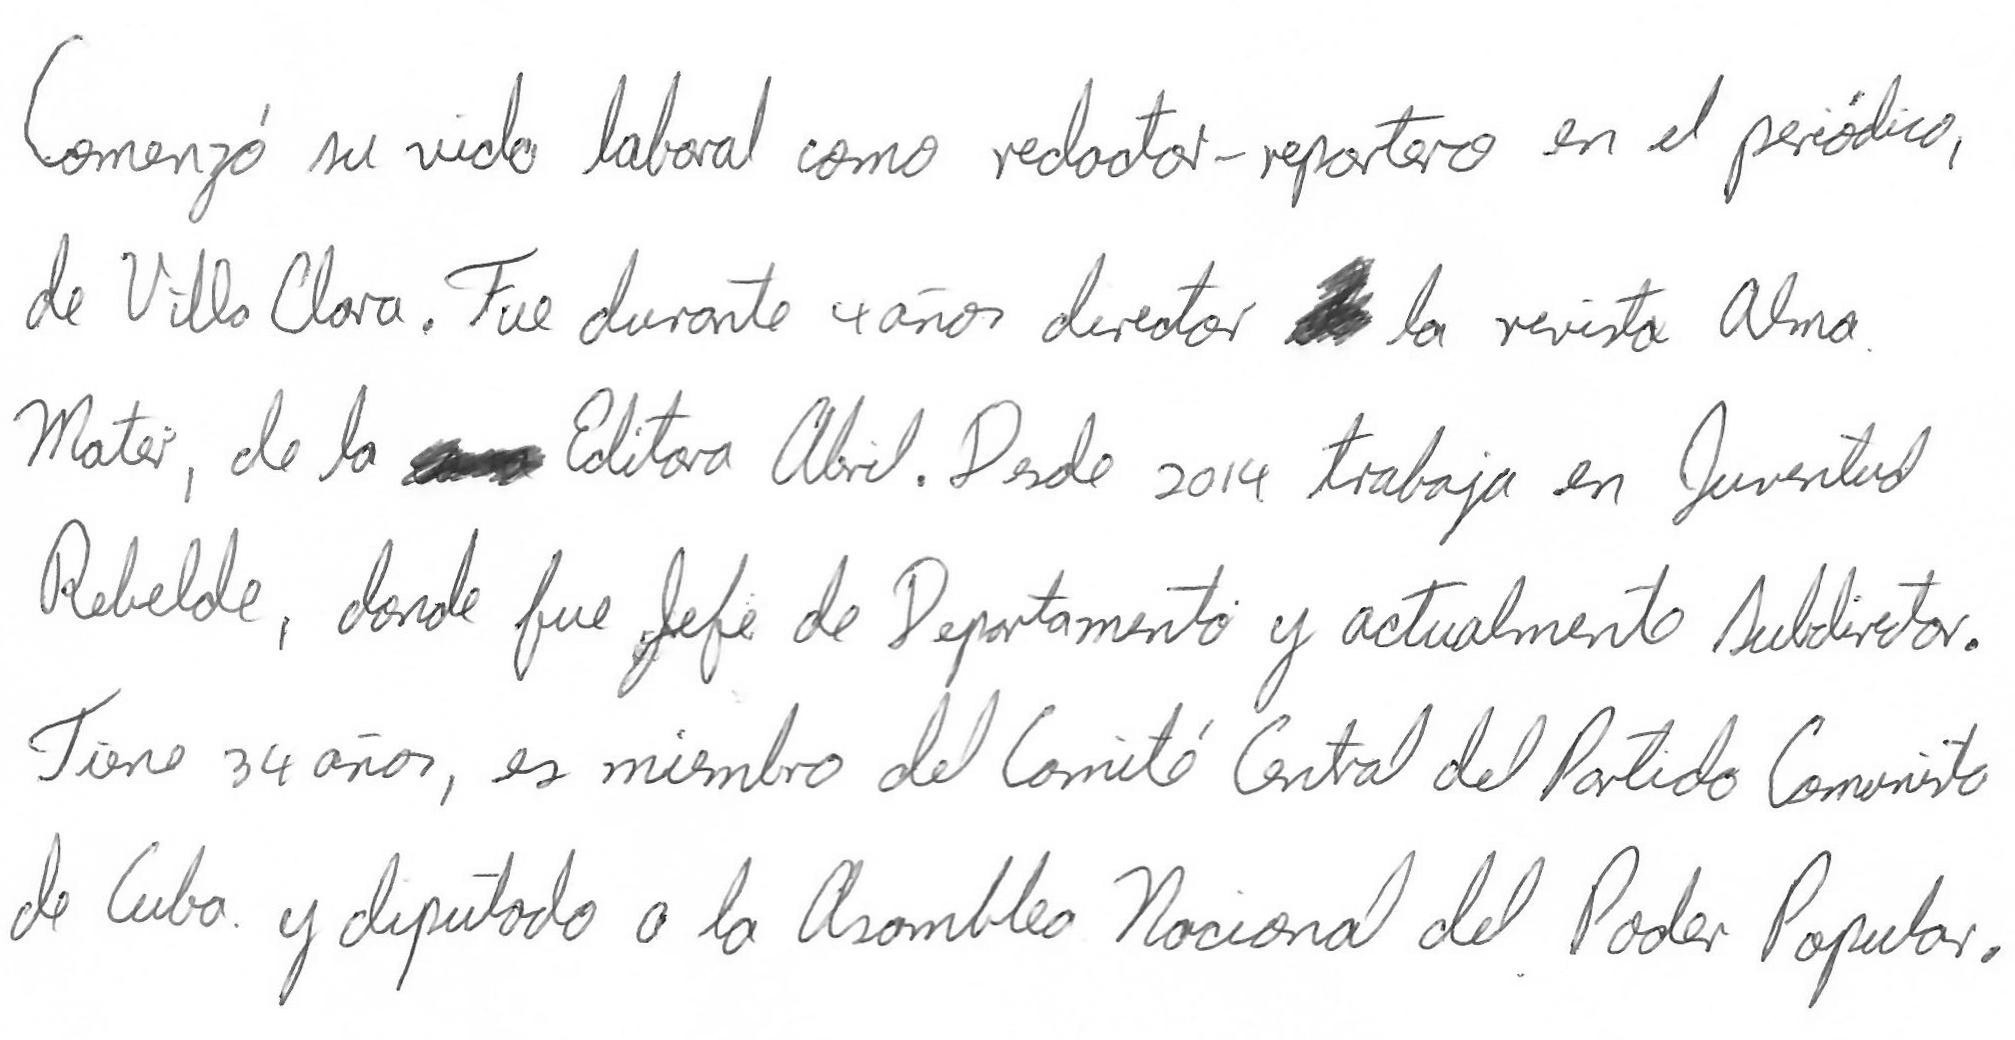 Comenzó su vida laboral como redactor-reportero en el periódico,
de Villa Clara. Fue durante 4 años director la revista Alma
Mater, de la Editora Abril. Desde 2014 trabaja en Juventud
Rebelde, donde fue Jefe de Departamento y actualmente subdirector.
Tiene 34 años, es miembro del Comité Central del Partido Comunista
de Cuba y diputado a la Asamblea Nacional del Poder Popular.